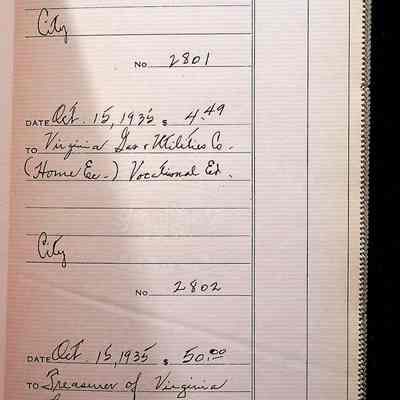 City
No. 2801
DATE Oct. 15, 1935 $ 4.49
TO Virginia Gas & Utilities Co.
(Home Ec.) Vocational Ed.
City
No. 2802
DATE Oct. 15, 1935 $ 50.00
TO Treasurer of Virginia